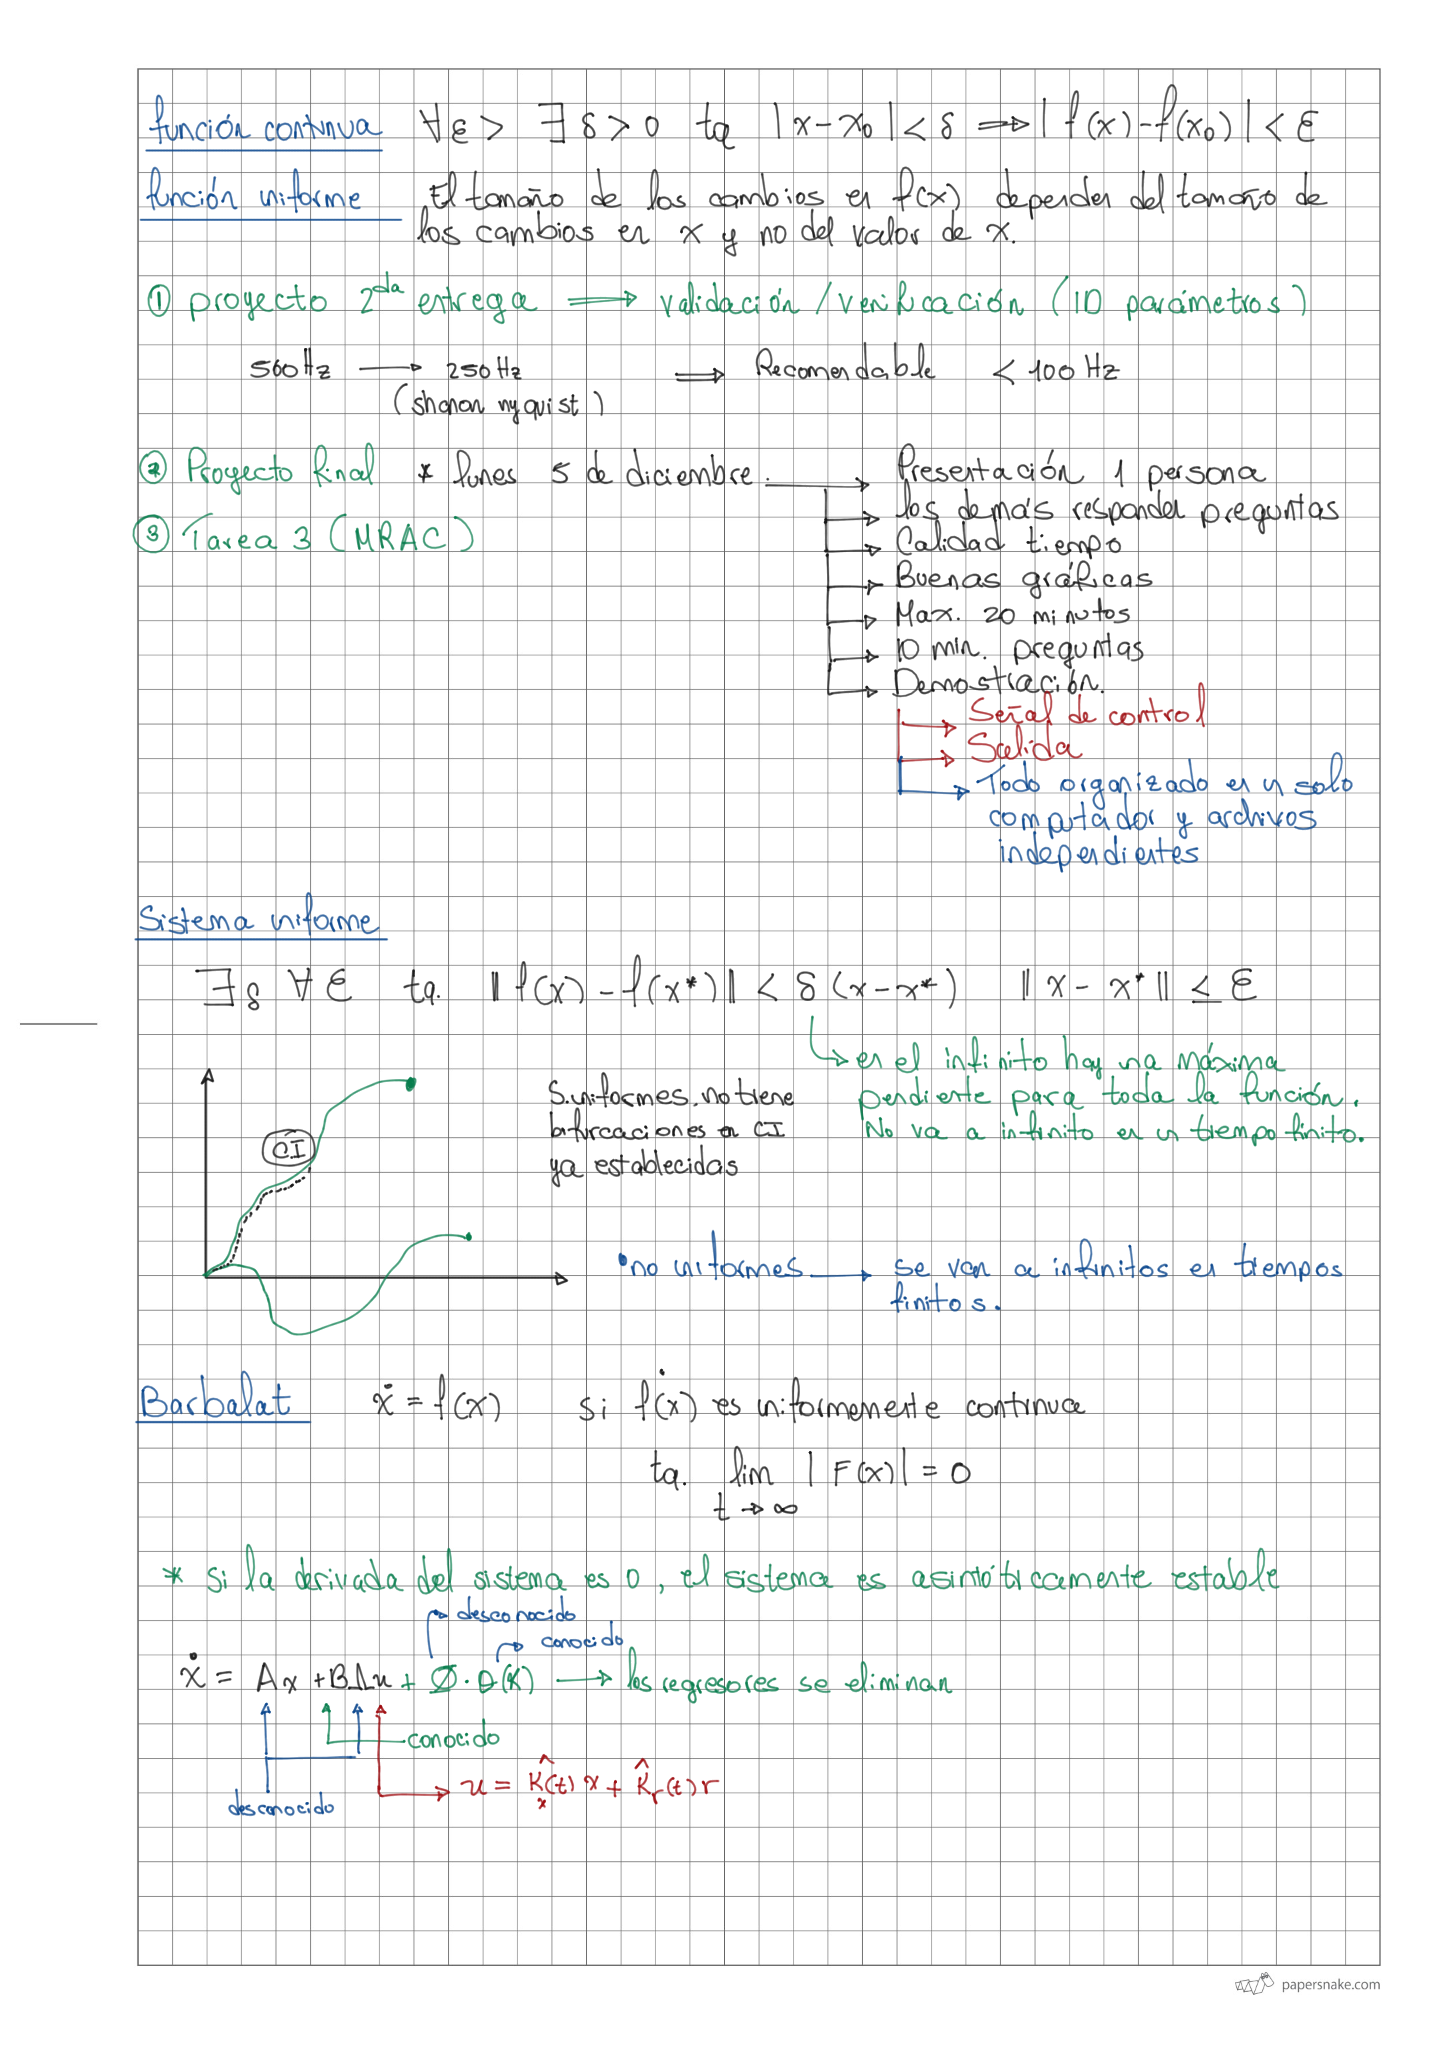 función continua ∀ε > ∃ δ > 0 tq |x - x₀| < δ ⟹ | f(x) - f(x₀) | < ε
función uniforme El tamaño de los cambios en f(x) dependen del tamaño de
los cambios en x y no del valor de x.
① proyecto 2da entrega ⟹ validación / verificación (ID parámetros)
500Hz → 250Hz ⟹ Recomendable < 100 Hz
(shanon nyquist)
② Proyecto final * lunes 5 de diciembre. → Presentación 1 persona
→ los demás responden preguntas
③ Tarea 3 (MRAC)
→ Calidad tiempo
→ Buenas gráficas
→ Max. 20 minutos
→ 10 min. preguntas
→ Demostración.
→ Señal de control
→ Salida
→ Todo organizado en un solo
computador y archivos
independientes
Sistema uniforme
∃ δ ∀ ε tq. ‖ f(x) - f(x*) ‖ < δ (x - x*) ‖ x - x* ‖ ≤ ε
→ en el infinito hay una máxima
S. uniformes. no tiene pendiente para toda la función.
bifurcaciones en CI No va a infinito en un tiempo finito.
CI
ya establecidas
• no uniformes → se van a infinitos en tiempos
finitos.
Barbalat ẋ = f(x) si ḟ(x) es uniformemente continua
tq. lim | F(x) | = 0
t → ∞
* si la derivada del sistema es 0, el sistema es asintóticamente estable
→ desconocido
→ conocido
ẋ = Ax + BΛu + Ø · θ(x) → los regresores se eliminan
conocido
u = K̂ₓ(t) x + K̂ᵣ(t) r
desconocido
papersnake.com